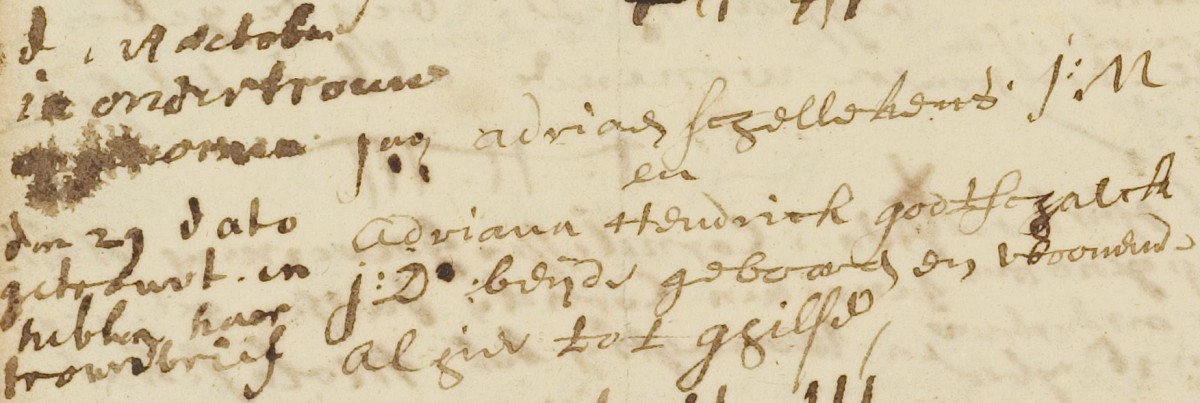 d 14 october
in ondertrouw
den 29 dato
getrouwt in
hebben haer
trouwbrief
Jan adriaen schellekens j:M
en
Adriana Hendrick godtschalck
j:D beijde geboren en woonende
alhier tot ghilse